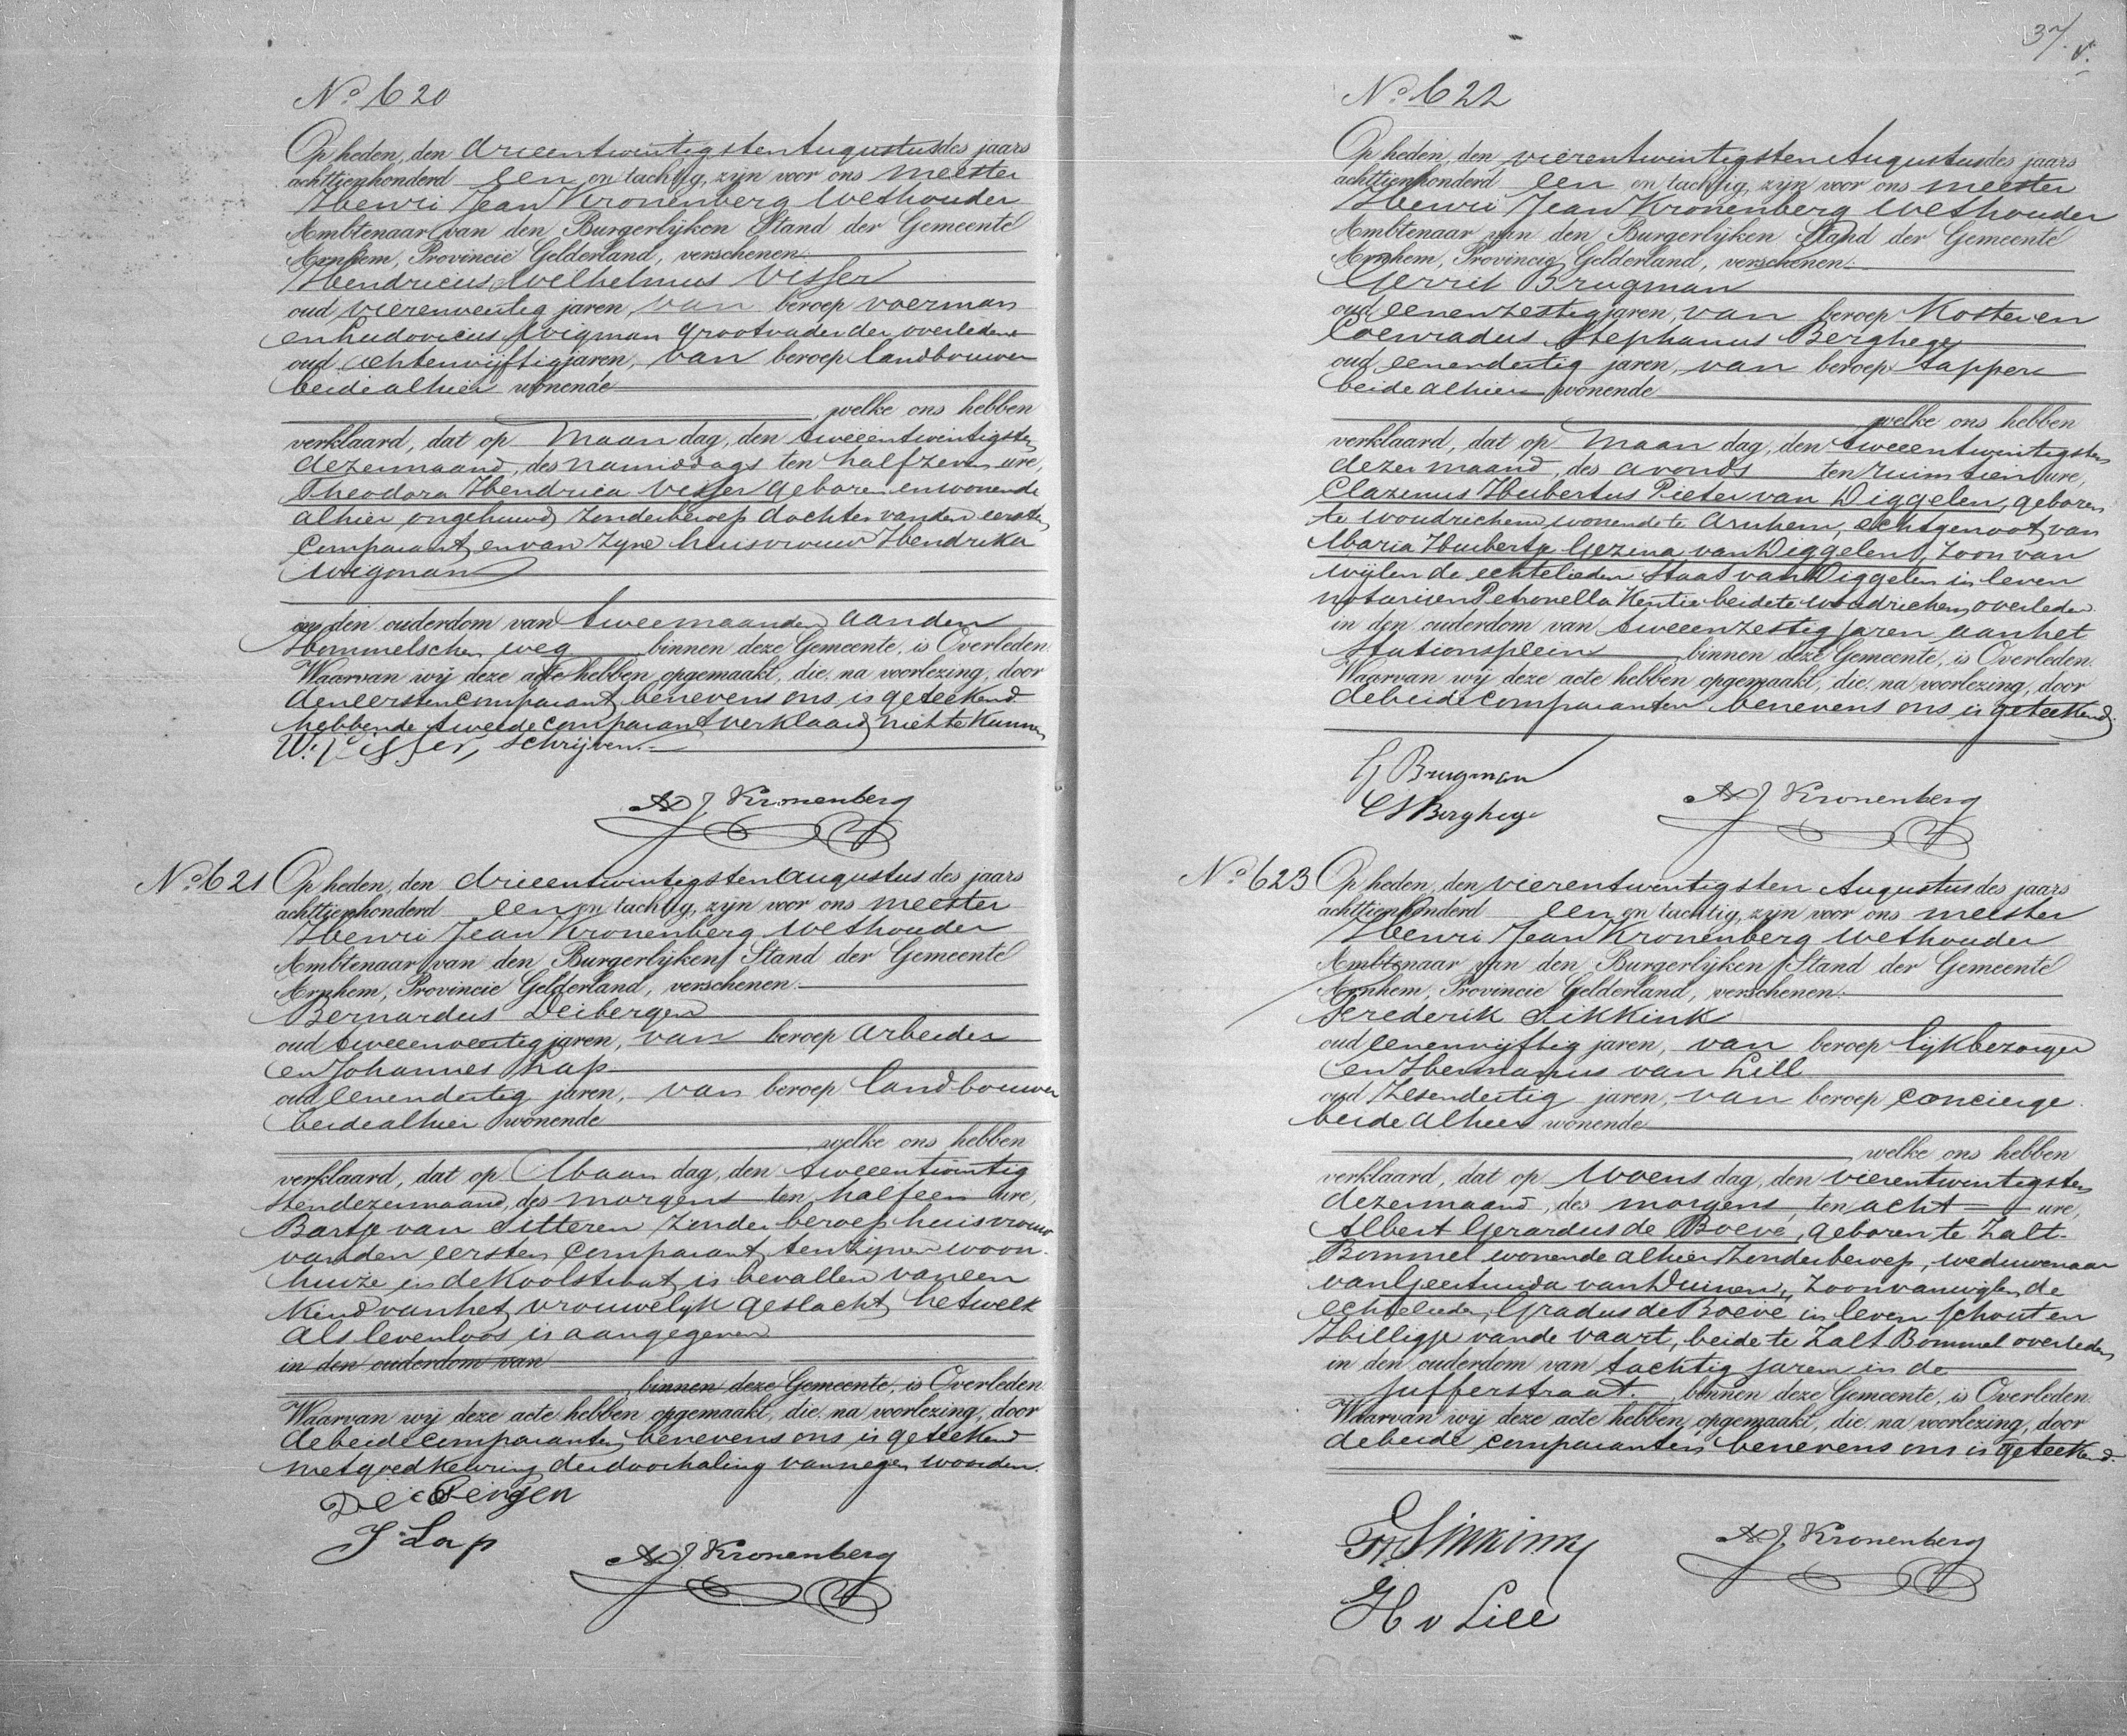 No 620
Op heden, den drieentwintigsten Augustus des jaars
achttienhonderd een en tachtig, zijn voor ons meester
Henri Jean Kronenberg Wethouder
Ambtenaar van den Burgerlijken Stand der Gemeente
Arnhem, Provincie Gelderland, verschenen:
Hendricus Wilhelmus Visser
oud vierenveertig jaren, van beroep voerman
en Ludovicus Wigman Grootvader der overledene
oud achtenvijftig jaren, van beroep landbouwer
beide alhier wonende
welke ons hebben
verklaard, dat op Maandag, den tweeentwintigsten
dezer maand, des namiddags ten half zeven ure,
Theodora Hendrica Visser geboren en wonende
alhier ongehuwd zonder beroep dochter van den eersten
Comparant, en van zyne huisvrouw Hendrika
Wigman
in den ouderdom van twee maanden aan den
Hommelschen weg binnen deze Gemeente, is Overleden.
Waarvan wij deze acte hebben opgemaakt, die, na voorlezing, door
den eersten comparant benevens ons is geteekend
hebbende tweede comparant verklaard niet te kunnen
W. Visser, schrijven.
HJ Kronenberg
No 621 Op heden, den drieentwintigsten Augustus des jaars
achttienhonderd een en tachtig, zijn voor ons meester
Henri Jean Kronenberg Wethouder
Ambtenaar van den Burgerlijken Stand der Gemeente
Arnhem, Provincie Gelderland, verschenen:
Bernardus Deibergen
oud tweeenveertig jaren, van beroep Arbeider
en Johannes Lap
oud eenendertig jaren, van beroep landbouwer
beide alhier wonende
welke ons hebben
verklaard, dat op Maandag, den tweeentwintig
sten dezer maand, des morgens ten half een ure,
Bartje van Sitteren zonder beroep huisvrouw
van den eersten Comparant, ten zijnen woon
huize in de Koolstraat is bevallen van een
Kind van het vrouwelijk geslacht, hetwelk
als levenloos is aangegeven
in den ouderdom van
binnen deze Gemeente, is Overleden.
Waarvan wij deze acte hebben opgemaakt, die, na voorlezing, door
de beide comparanten benevens ons is geteekend
met goedkeuring der doorhaling van negen woorden.
Deibergen
J Lap
HJ Kronenberg
37.
No 622
Op heden, den vierentwintigsten Augustus des jaars
achttienhonderd een en tachtig, zijn voor ons meester
Henri Jean Kronenberg Wethouder
Ambtenaar van den Burgerlijken Stand der Gemeente
Arnhem, Provincie Gelderland, verschenen:
Gerrit Brugman
oud eenenzestig jaren, van beroep Koster en
Coenradus Stephanus Berghege
oud eenendertig jaren, van beroep tapper
beide alhier wonende
welke ons hebben
verklaard, dat op Maandag, den tweeentwintigsten
dezer maand, des avonds ten ruim tien ure,
Clazinus Hubertus Pieter van Diggelen, geboren
te Woudrichem wonende te Arnhem, echtgenoot van
Maria Huberta Gezina van Diggelen, zoon van
wijlen de echtelieden Staas van Diggelen in leven
notaris en Petronella Kentie beide te Woudrichem overleden
in den ouderdom van tweeenzestig jaren aan het
Stationsplein binnen deze Gemeente, is Overleden.
Waarvan wij deze acte hebben opgemaakt, die, na voorlezing, door
de beide comparanten benevens ons is geteekend.
G Brugman
CS Berghege
HJ Kronenberg
No 623 Op heden, den vierentwintigsten Augustus des jaars
achttienhonderd een en tachtig, zijn voor ons meester
Henri Jean Kronenberg Wethouder
Ambtenaar van den Burgerlijken Stand der Gemeente
Arnhem, Provincie Gelderland, verschenen:
Frederik Sikkink
oud eenenvijftig jaren, van beroep lijkbezorger
en Hermanus van Lill
oud zesendertig jaren, van beroep concierge
beide alhier wonende
welke ons hebben
verklaard, dat op Woensdag, den vierentwintigsten
dezer maand, des morgens, ten acht ure,
Albert Gerardus de Boeve, geboren te Zalt-
Bommel wonende alhier zonder beroep, weduwenaar
van Geertruida van Duinen, zoon van wijlen de
echtelieden, Gradus de Boeve in leven schout en
Hilligje van de Vaart, beide te Zalt Bommel overleden
in den ouderdom van tachtig jaren in de
Jufferstraat. binnen deze Gemeente, is Overleden.
Waarvan wij deze acte hebben opgemaakt, die, na voorlezing, door
de beide comparanten benevens ons is geteekend.
Fr Sikkink
H v Lill
HJ Kronenberg